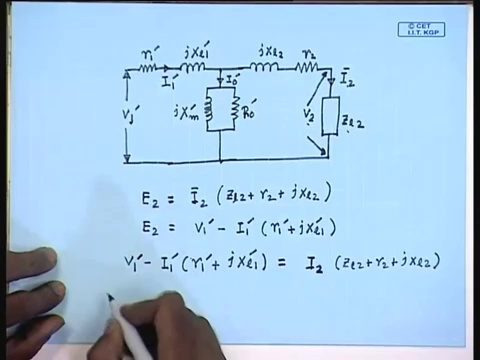 © CET
I.I.T. KGP
r₁′ jXℓ₁′ jXℓ₂ r₂
I₁′ I₀′ Ī₂
V₁′ jXm′ R₀′ V₂ Zℓ₂
E₂ = Ī₂ (Zℓ₂ + r₂ + jXℓ₂)
E₂ = V₁′ − I₁′ (r₁′ + jXℓ₁′)
V₁′ − I₁′ (r₁′ + jXℓ₁′) = I₂ (Zℓ₂ + r₂ + jXℓ₂)